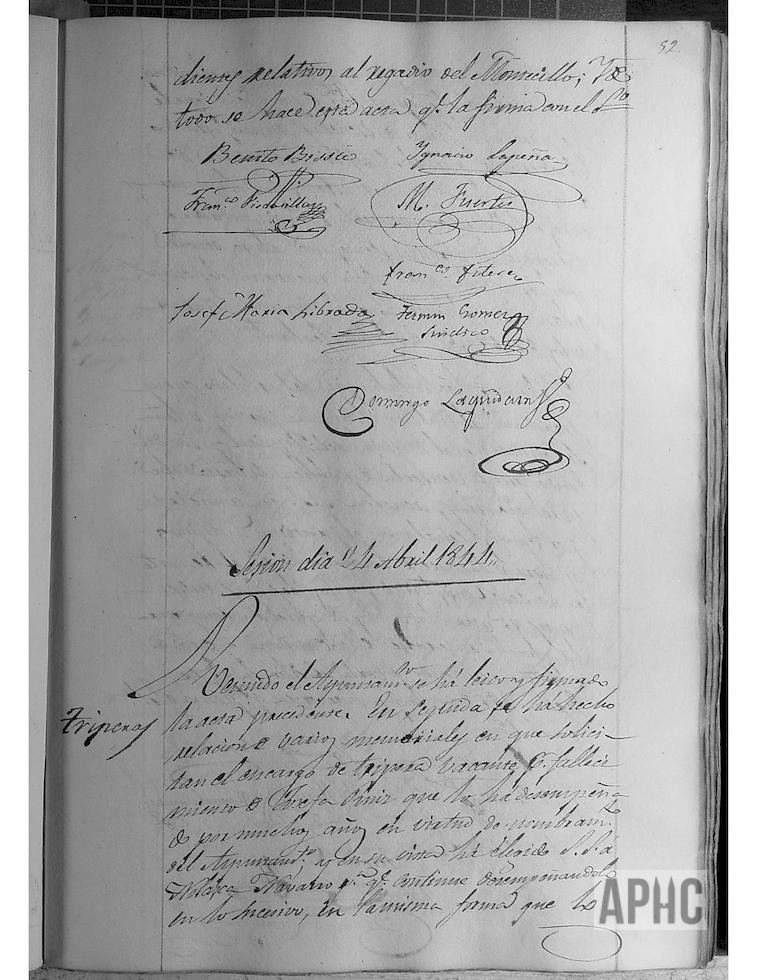 52.
dientes relativos al regadio del Monecillo; Y de
todo se hace esta acta qe. la firma con el
Benito
Ygnacio Lapeña
Franco.
M. Fuertes
Franco. Fitera
Josef Maria Librada
Fermin Gomez
Sindico
Domingo
Sesion dia 24 Abril 1844.,
Triperas
Reunido el Ayuntamto. se há leido y firmado
la acta precedente. En seguida, se ha hecho
relacion de varios memoriales en que solici-
tan el encargo de tripera vacante pr. falleci
miento de Josefa que lo há desempeña-
do por muchos años en virtud de nombramto.
del Ayuntamto. y en su vista há elegido S.S. á
Navarro pa. qe. continue desempeñandolo
en lo sucesivo, en la misma forma que lo
APHC